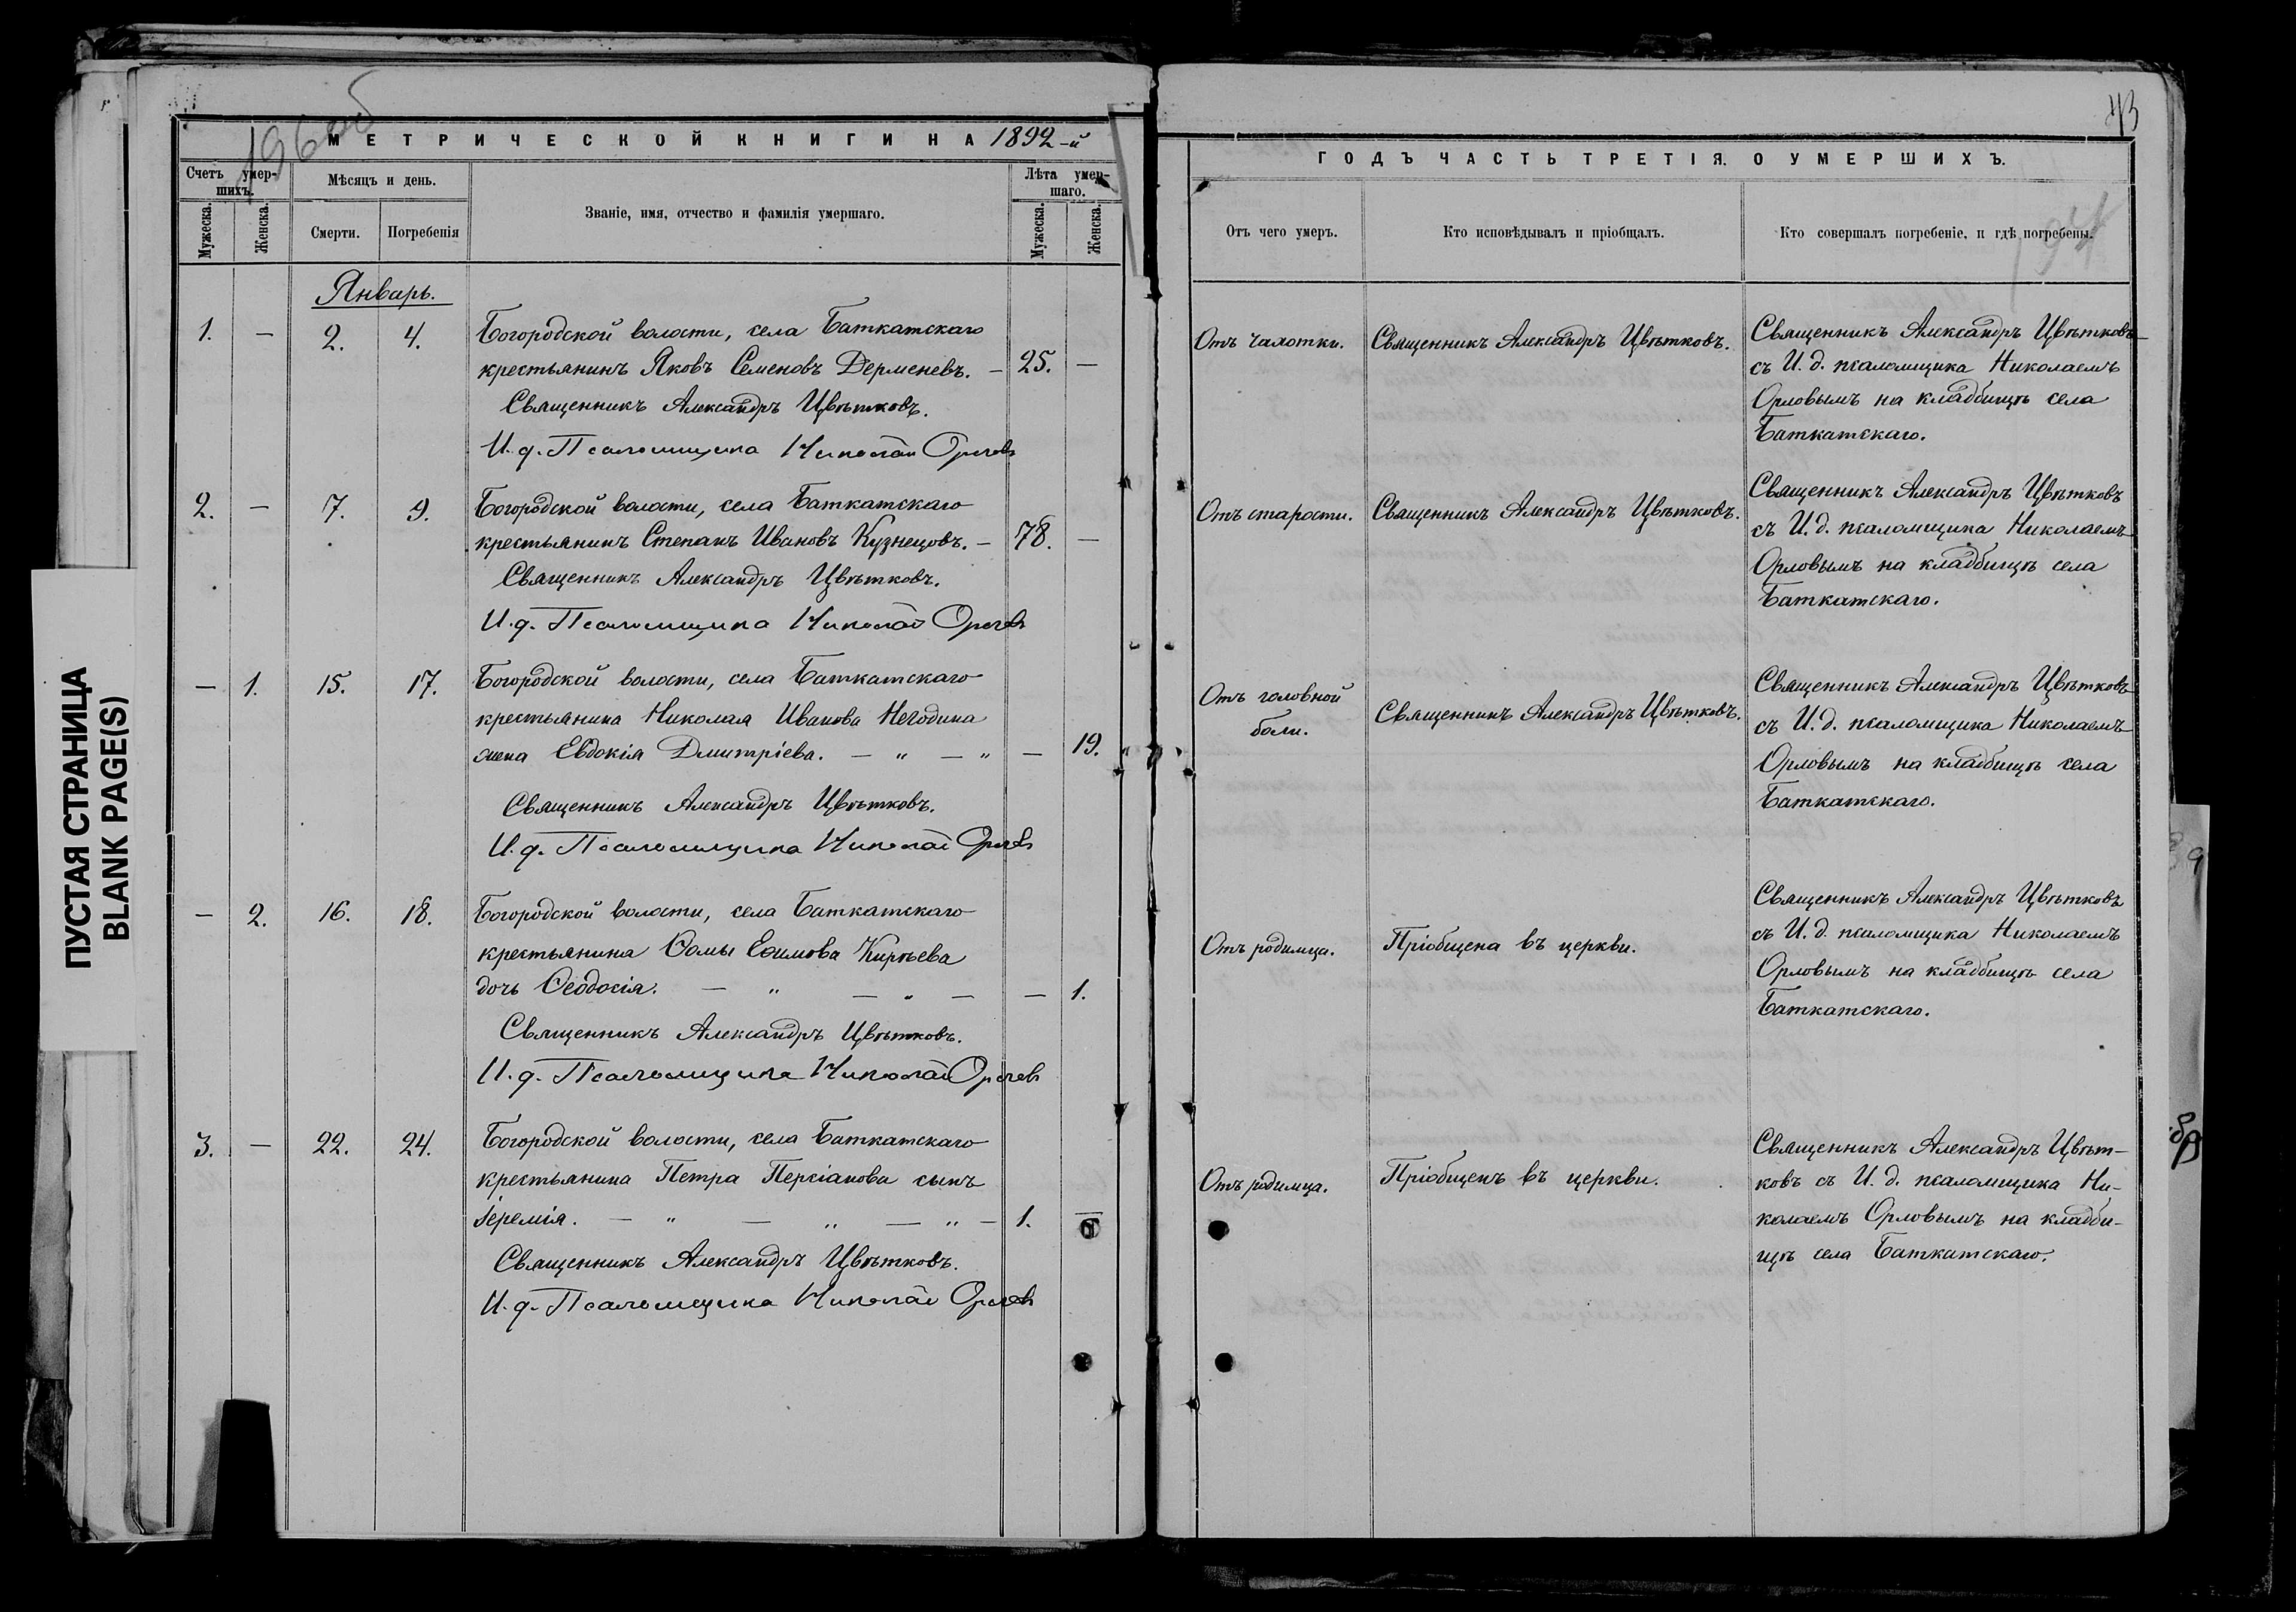 196 об
43
МЕТРИЧЕСКОЙ КНИГИ НА 1892-й
ГОДЪ ЧАСТЬ ТРЕТІЯ. О УМЕРШИХЪ.
Счетъ умер-
шихъ.
Мужеска.
Женска.
Мѣсяцъ и день.
Смерти.
Погребенія
Званіе, имя, отчество и фамилія умершаго.
Лѣта умер-
шаго.
Мужеска.
Женска.
Отъ чего умеръ.
Кто исповѣдывалъ и пріобщалъ.
Кто совершалъ погребеніе, и гдѣ погребены.
Январь.
1. — 2. 4.
Богородской волости, села Баткатскаго
крестьянинъ Яковъ Семеновъ Дерменевъ. — 25. —
Священникъ Александръ Цвѣтковъ.
И. д. Псаломщика Николай Орловъ
Отъ чахотки.
Священникъ Александръ Цвѣтковъ.
Священникъ Александръ Цвѣтковъ
съ И. д. псаломщика Николаемъ
Орловымъ на кладбищѣ села
Баткатскаго.
2. — 7. 9.
Богородской волости, села Баткатскаго
крестьянинъ Степанъ Ивановъ Кузнецовъ. — 78. —
Священникъ Александръ Цвѣтковъ.
И. д. Псаломщика Николай Орловъ
Отъ старости.
Священникъ Александръ Цвѣтковъ.
Священникъ Александръ Цвѣтковъ
съ И. д. псаломщика Николаемъ
Орловымъ на кладбищѣ села
Баткатскаго.
— 1. 15. 17.
Богородской волости, села Баткатскаго
крестьянина Николая Иванова Негодина
жена Евдокія Дмитріева. — " — " — 19.
Священникъ Александръ Цвѣтковъ.
И. д. Псаломщика Николай Орловъ
Отъ головной
боли.
Священникъ Александръ Цвѣтковъ.
Священникъ Александръ Цвѣтковъ
съ И. д. псаломщика Николаемъ
Орловымъ на кладбищѣ села
Баткатскаго.
— 2. 16. 18.
Богородской волости, села Баткатскаго
крестьянина Ѳомы Еѳимова Кирѣева
дочь Ѳеодосія. — " — " — — 1.
Священникъ Александръ Цвѣтковъ.
И. д. Псаломщика Николай Орловъ
Отъ родимца.
Пріобщена въ церкви.
Священникъ Александръ Цвѣтковъ
съ И. д. псаломщика Николаемъ
Орловымъ на кладбищѣ села
Баткатскаго.
3. — 22. 24.
Богородской волости, села Баткатскаго
крестьянина Петра Персіанова сынъ
Іеремія. — " — " — " — 1. —
Священникъ Александръ Цвѣтковъ.
И. д. Псаломщика Николай Орловъ
Отъ родимца.
Пріобщенъ въ церкви.
Священникъ Александръ Цвѣт-
ковъ съ И. д. псаломщика Ни-
колаемъ Орловымъ на кладби-
щѣ села Баткатскаго.
ПУСТАЯ СТРАНИЦА
BLANK PAGE(S)